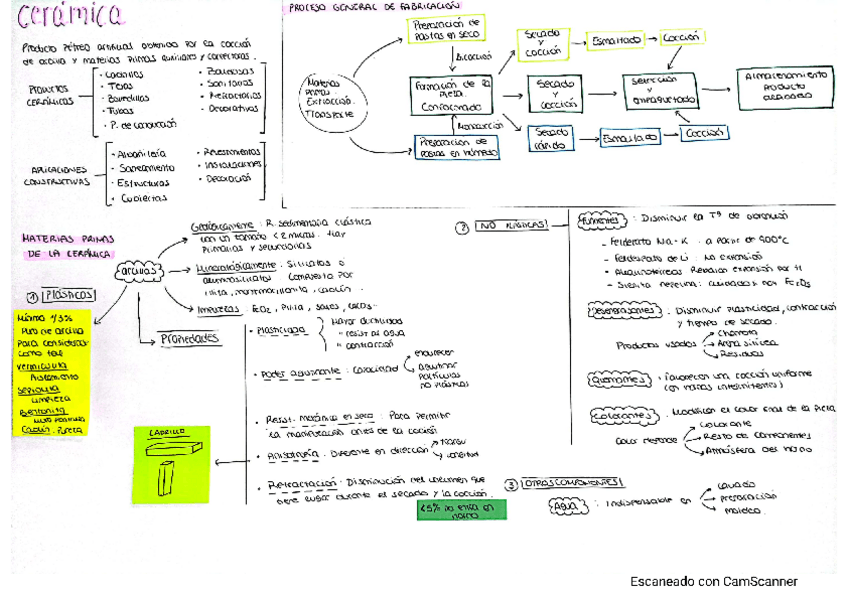 cerámica
Producto pétreo artificial obtenido por la cocción
de arcilla y materias primas auxiliares y correctoras.
PRODUCTOS
CERÁMICOS
· Ladrillos
· Tejas
· Bovedillas
· Tubos
· P. de construcción
· Baldosas
· Sanitarios
· Refractarios
· Decorativos
APLICACIONES
CONSTRUCTIVAS
· Albañilería
· Saneamiento
· Estructuras
· Cubiertas
· Revestimientos
· Instalaciones
· Decoración
PROCESO GENERAL DE FABRICACIÓN
Materias
primas
Extracción.
Transporte
Preparación de
Pastas en seco
Bicocción
Formación de la
Pieza.
Conformado
Monococción
Preparación de
pastas en húmedo
Secado
y
cocción
Esmaltado
Cocción
Secado
y
cocción
Selección
y
empaquetado
Almacenamiento
producto
acabado
Secado
rápido
Esmaltado
Cocción
MATERIAS PRIMAS
DE LA CERÁMICA
arcillas
Geológicamente: R. sedimentaria clástica
con un tamaño < 2 micras. Hay
Primarias y secundarias
Mineralógicamente: Silicatos o
aluminosilicatos compuesto por
illita, montmorillonita, caolín.
Impurezas:
Pirita, sales,
① PLÁSTICOS
Mínimo
de arcilla
Para considerar
como tal
Vermiculita
Aislamiento
Sepiolita
Limpieza
Bentonita
Caolín. Pureza
Propiedades
· Plasticidad
Mayor
+ resist al agua
+ contracción
· Poder aglutinante: Capacidad
endurecer
aglutinar
Partículas
no plásticas
· Resist. mecánica en seco: Para permitir
la manipulación antes de la cocción
· Anisotropía: Diferente en dirección
· Retractación. Disminución del volumen que
tiene lugar durante el secado y la cocción.
<5% no entra en
horno
LADRILLO
② NO PLÁSTICAS
Fundentes: Disminuir la Tª de
- Feldespato Na-K: a partir de 900°C
- Feldespato de Li: No expansión
- Sienita nefelina:
Desengrasantes: Disminuir plasticidad, contracción
y tiempo de secado.
Productos usados
Chamota
Arena silícea
Residuos
: Favorecen una cocción uniforme
(en hornos intermitentes)
Colorantes: Modifican el color final de la Pieza
Color depende
Colorante
Resto de componentes
Atmósfera del horno
③ OTROS COMPONENTES
Agua: Indispensable en
lavado
preparación
moldeo.
Escaneado con CamScanner